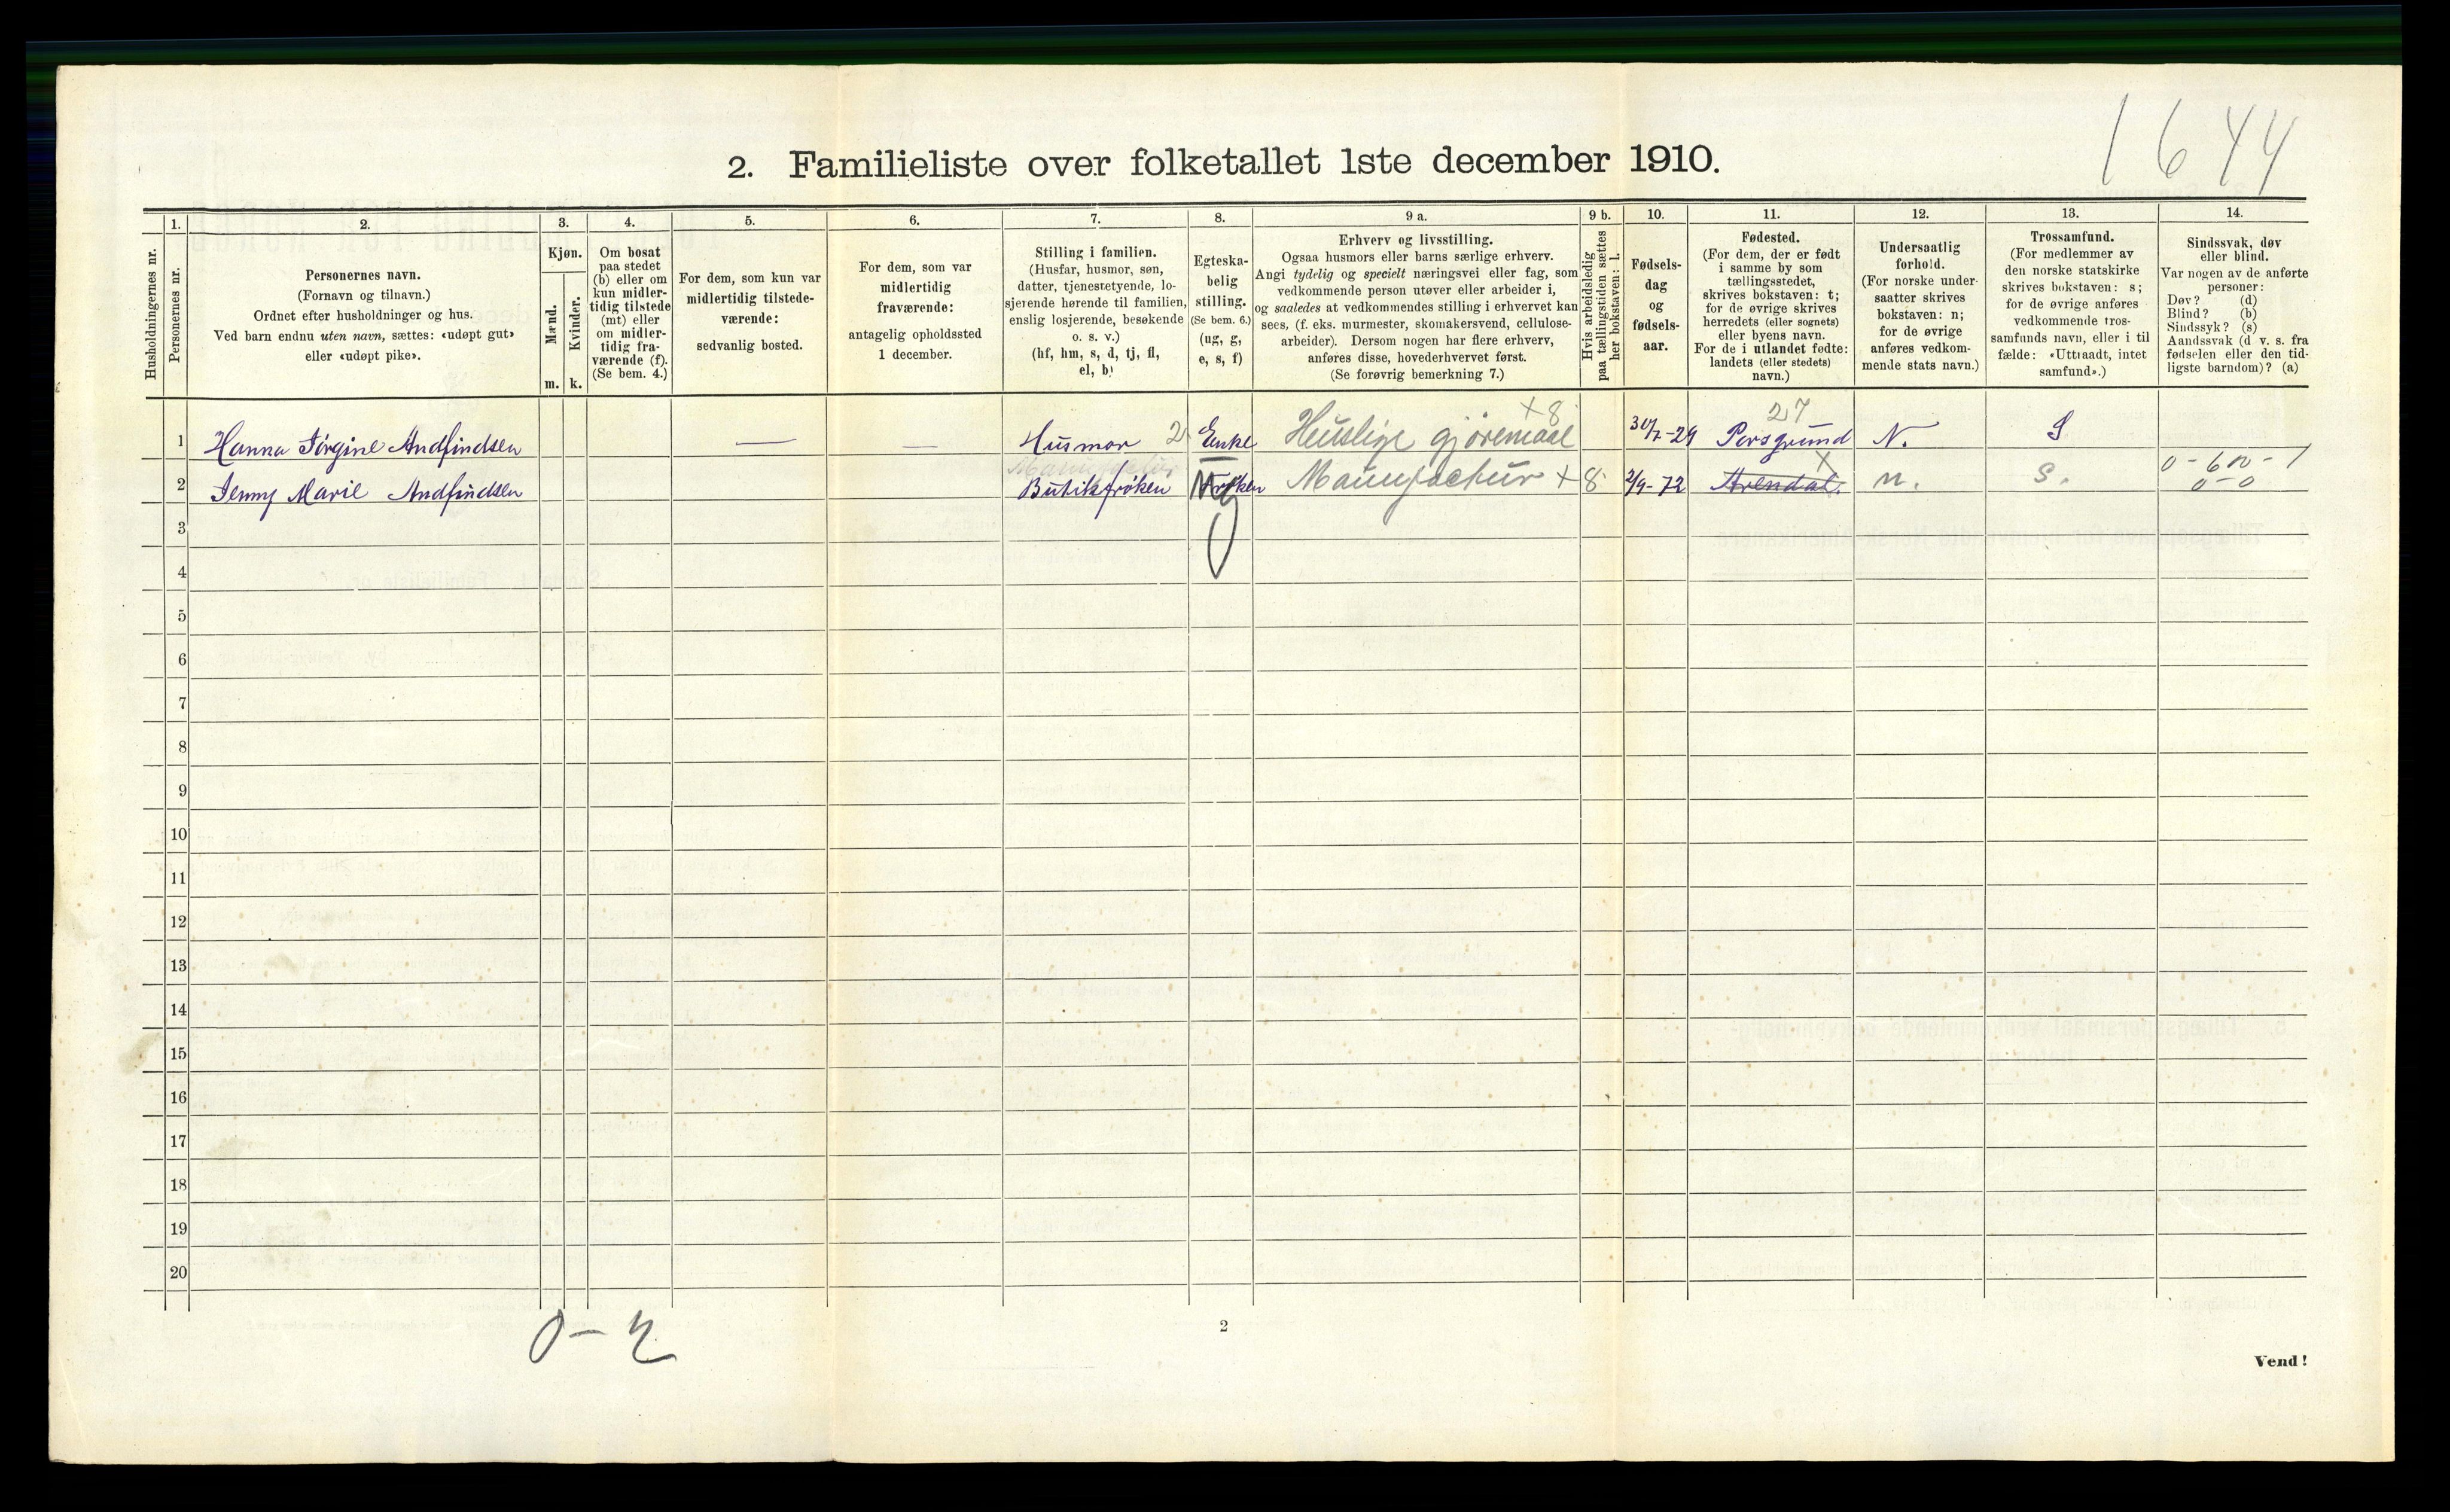 1644
2. Familieliste over folketallet 1ste december 1910.
Husholdningernes nr.
1.
Personernes nr.
2.
Personernes navn.
(Fornavn og tilnavn.)
Ordnet efter husholdninger og hus.
Ved barn endnu uten navn, sættes: «udøpt gut»
eller «udøpt pike».
3.
Kjøn.
Mænd.
Kvinder.
m. k.
4.
Om bosat
paa stedet
(b) eller om
kun midler-
tidig tilstede
(mt) eller
om midler-
tidig fra-
værende (f).
(Se bem. 4.)
5.
For dem, som kun var
midlertidig tilstede-
værende:
sedvanlig bosted.
6.
For dem, som var
midlertidig
fraværende:
antagelig opholdssted
1 december.
7.
Stilling i familien.
(Husfar, husmor, søn,
datter, tjenestetyende, lo-
sjerende hørende til familien,
enslig losjerende, besøkende
o. s. v.)
(hf, hm, s, d, tj, fl,
el, b)
8.
Egteska-
belig
stilling.
(Se bem. 6.)
(ug, g,
e, s, f)
9 a.
Erhverv og livsstilling.
Ogsaa husmors eller barns særlige erhverv.
Angi tydelig og specielt næringsvei eller fag, som
vedkommende person utøver eller arbeider i,
og saaledes at vedkommendes stilling i erhvervet kan
sees, (f. eks. murmester, skomakersvend, cellulose-
arbeider). Dersom nogen har flere erhverv,
anføres disse, hovederhvervet først.
(Se forøvrig bemerkning 7.)
9 b.
Hvis arbeidsledig
paa tællingstiden sættes
her bokstaven: l.
10.
Fødsels-
dag
og
fødsels-
aar.
11.
Fødested.
(For dem, der er født
i samme by som
tællingsstedet,
skrives bokstaven: t;
for de øvrige skrives
herredets (eller sognets)
eller byens navn.
For de i utlandet fødte:
landets (eller stedets)
navn.)
12.
Undersaatlig
forhold.
(For norske under-
saatter skrives
bokstaven: n;
for de øvrige
anføres vedkom-
mende stats navn.)
13.
Trossamfund.
(For medlemmer av
den norske statskirke
skrives bokstaven: s;
for de øvrige anføres
vedkommende tros-
samfunds navn, eller i til
fælde: «Uttraadt, intet
samfund».)
14.
Sindssvak, døv
eller blind.
Var nogen av de anførte
personer:
Døv? (d)
Blind? (b)
Sindssyk? (s)
Aandssvak (d v. s. fra
fødselen eller den tid-
ligste barndom)? (a)
1 Hanna Jørgine Andfindsen — — Husmor 2 Enke Huslige gjøremaal +8 30/7-29 27 Porsgrund N. S
2 Jenny Marie Andfindsen Butikfrøken Frøken Manufactur +8 2/9-72 Arendal. x n. S. 0-600-1
0-0
3
4
5
6
7
8
9
10
11
12
13
14
15
16
17
18
19
20
0-2
2
Vend!